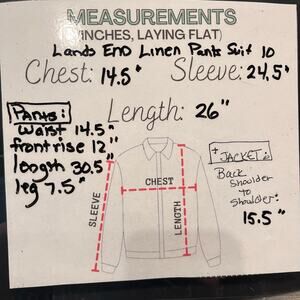 MEASUREMENTS
(INCHES, LAYING FLAT)
Lands End Linen Pants Suit 10
Chest: 14.5" Sleeve: 24.5"
Length: 26"
Pants:
Waist 14.5"
front rise 12"
length 30.5"
leg 7.5"
JACKET:
Back
Shoulder
to
Shoulder:
15.5"
CHEST
SLEEVE
LENGTH